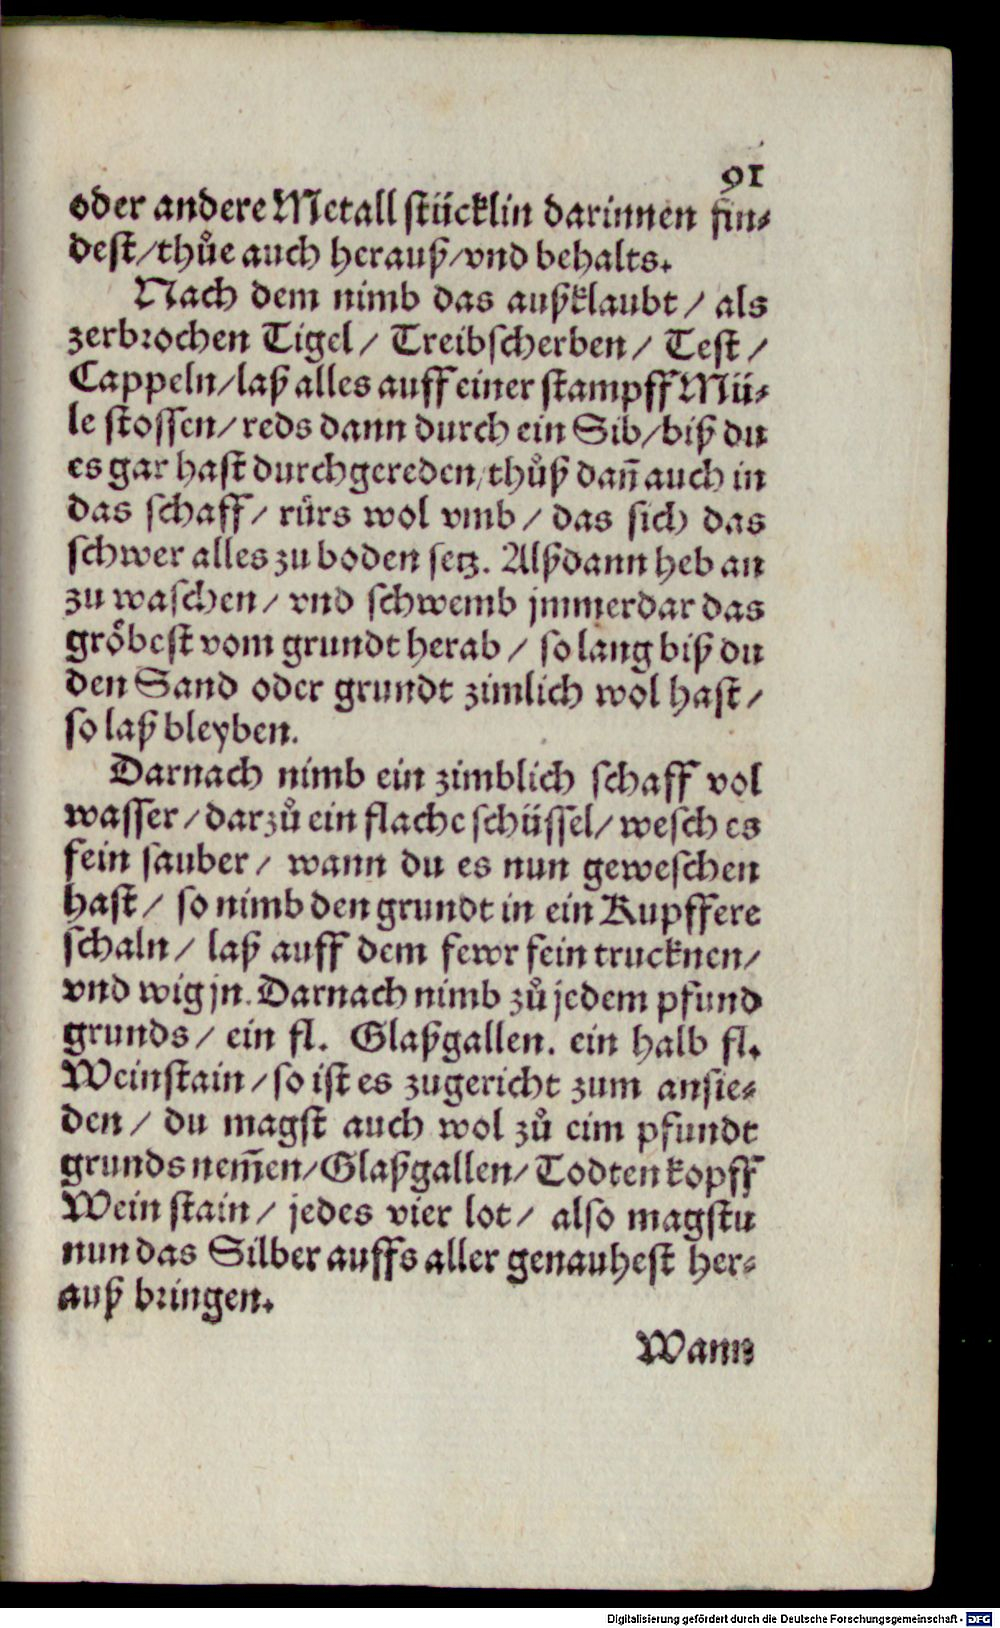 91
oder andere Metall stücklin darinnen fin⸗
dest/thůe auch herauß/vnd behalts.
Nach dem nimb das außklaubt/ als
zerbrochen Tigel/ Treibscherben/ Test/
Cappeln/laß alles auff einer stampff Mü⸗
le stossen/reds dann durch ein Sib/biß du
es gar hast durchgereden/thůß dañ auch in
das schaff/ rürs wol vmb/ das sich das
schwer alles zu boden setz. Alßdann heb an
zu waschen/ vnd schwemb jmmerdar das
gröbest vom grundt herab/ so lang biß du
den Sand oder grundt zimlich wol hast/
so laß bleyben.
Darnach nimb ein zimblich schaff vol
wasser/darzů ein flache schüssel/wesch es
fein sauber/ wann du es nun geweschen
hast/ so nimb den grundt in ein Kupffere
schaln/ laß auff dem fewr fein trucknen/
vnd wig jn. Darnach nimb zů jedem pfund
grunds/ ein fl. Glaßgallen. ein halb fl.
Weinstain/so ist es zugericht zum ansie⸗
den/ du magst auch wol zů eim pfundt
grunds nem̃en/Glaßgallen/Todten kopff
Wein stain/ jedes vier lot/ also magstu
nun das Silber auffs aller genauhest her⸗
auß bringen.
Wann
Digitalisierung gefördert durch die Deutsche Forschungsgemeinschaft - DFG